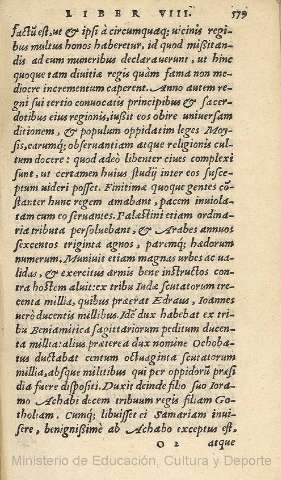 LIBER VIII. 579
factũ est, ut & ipsi à circumquaq; uicinis regi
bus multus honos haberetur, id quod missitan
dis ad eum muneribus declarauerunt, ut hinc
quoque tam diuitiæ regis quàm fama non me
diocre incrementum caperent. Anno autem re
gni sui tertio conuocatis principibus & sacer
dotibus eius regionis, iussit eos obire uniuersam
ditionem, & populum oppidatim leges Moy-
sis, earumq; obseruantiam atque religionis cul
tum docere: quod adeò libenter ciues complexi
sunt, ut certamen huius studij inter eos susce
ptum uideri posset. Finitimæ quoque gentes cõ
stanter hunc regem amabant, pacem inuiola-
tam cum eo seruantes. Palæstini etiam ordina-
ria tributa persoluebant, & Arabes annuos
sexcentos triginta agnos, paremq; hædorum
numerum. Muniuit etiam magnas urbes ac ua
lidas, & exercitus armis bene instructos con
tra hostem aluit: ex tribu Iuda scutatorum tre
centa millia, quibus præerat Edraus, Ioannes
uerò ducentis millibus. Idẽ dux habebat ex tri
bu Beniamitica sagittariorum peditum ducen-
ta millia: alius præterea dux nomine Ochoba-
tus ductabat centum octuaginta scutatorum
millia, absque militibus qui per oppidorũ præsi
dia fuere dispositi. Duxit deinde filio suo Iora-
mo Achabi decem tribuum regis filiam Go-
tholiam. Cumq; libuisset ei Samariam inui-
sere, benignissimè ab Achabo exceptus est,
O 2 atque
Ministerio de Educación, Cultura y Deporte